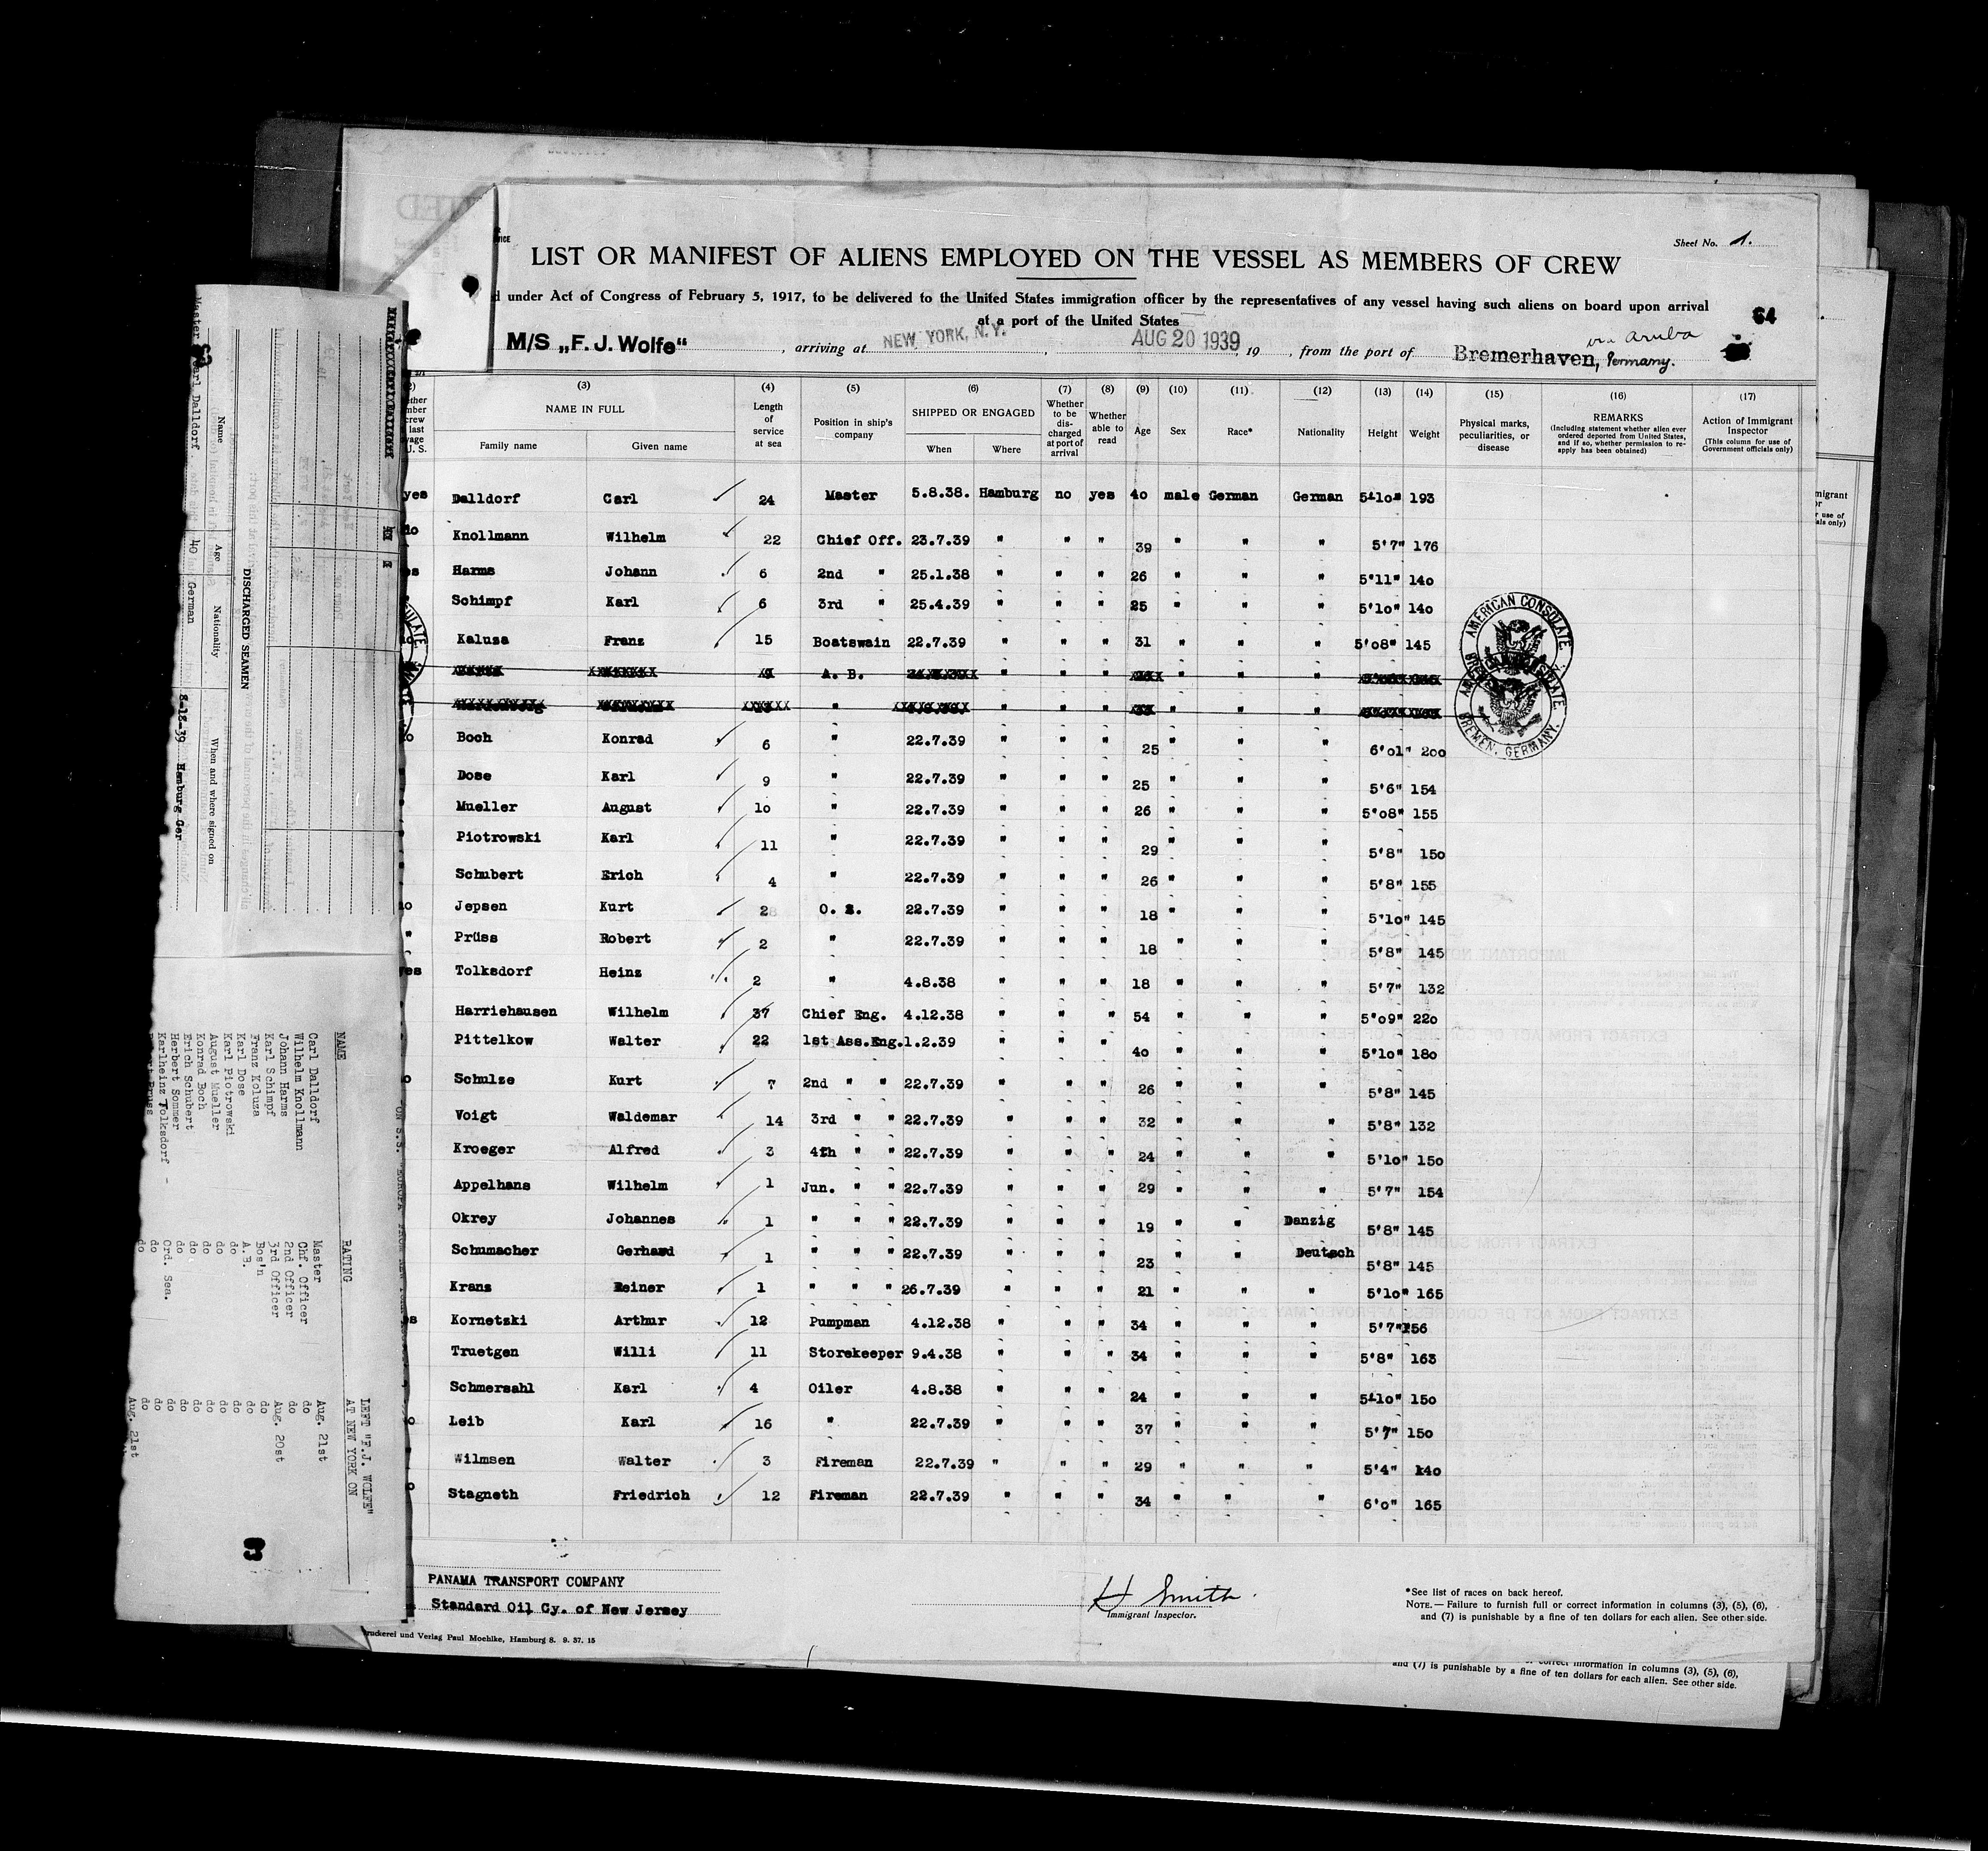 Sheet No. 1.
LIST OR MANIFEST OF ALIENS EMPLOYED ON THE VESSEL AS MEMBERS OF CREW
under Act of Congress of February 5, 1917, to be delivered to the United States immigration officer by the representatives of any vessel having such aliens on board upon arrival
at a port of the United States
64
M/S „F. J. Wolfe“, arriving at NEW YORK, N.Y., AUG 20 1939, 19, from the port of Bremerhaven, Germany. via Aruba
(3) (4) (5) (6) (7) (8) (9) (10) (11) (12) (13) (14) (15) (16) (17)
NAME IN FULL
Family name
Given name
Length of service at sea
Position in ship's company
SHIPPED OR ENGAGED
When
Where
Whether to be dis-charged at port of arrival
Whether able to read
Age
Sex
Race*
Nationality
Height
Weight
Physical marks, peculiarities, or disease
REMARKS
(Including statement whether alien ever ordered deported from United States, and if so, whether permission to re-apply has been obtained)
Action of Immigrant Inspector
(This column for use of Government officials only)
yes Dalldorf Carl 24 Master 5.8.38. Hamburg no yes 40 male German German 5'10" 193
Knollmann Wilhelm 22 Chief Off. 23.7.39 " " " 39 " " " 5'7" 176
Harms Johann 6 2nd " 25.1.38 " " " 26 " " " 5'11" 140
Schimpf Karl 6 3rd " 25.4.39 " " " 25 " " " 5'10" 140
Kaluza Franz 15 Boatswain 22.7.39 " " " 31 " " " 5'08" 145
A. B.
Boch Konrad 6 " 22.7.39 " " " 25 " " " 6'01" 200
Dose Karl 9 " 22.7.39 " " " 25 " " " 5'6" 154
Mueller August 10 " 22.7.39 " " " 26 " " " 5'08" 155
Piotrowski Karl 11 " 22.7.39 " " " 29 " " " 5'8" 150
Schubert Erich 4 " 22.7.39 " " " 26 " " " 5'8" 155
Jepsen Kurt 2 O. S. 22.7.39 " " " 18 " " " 5'10" 145
Prüss Robert 2 " 22.7.39 " " " 18 " " " 5'8" 145
Tolksdorf Heinz 2 " 4.8.38 " " " 18 " " " 5'7" 132
Harriehausen Wilhelm 37 Chief Eng. 4.12.38 " " " 54 " " " 5'09" 220
Pittelkow Walter 22 1st Ass.Eng. 1.2.39 " " " 40 " " " 5'10" 180
Schulze Kurt 7 2nd " " 22.7.39 " " " 26 " " " 5'8" 145
Voigt Waldemar 14 3rd " " 22.7.39 " " " 32 " " " 5'8" 132
Kroeger Alfred 3 4th " " 22.7.39 " " " 24 " " " 5'10" 150
Appelhans Wilhelm 1 Jun. " " 22.7.39 " " " 29 " " " 5'7" 154
Okrey Johannes 1 " " " 22.7.39 " " " 19 " " Danzig 5'8" 145
Schumacher Gerhard 1 " " " 22.7.39 " " " 23 " " Deutsch 5'8" 145
Krans Reiner 1 " " " 26.7.39 " " " 21 " " " 5'10" 165
Kornetzki Arthur 12 Pumpman 4.12.38 " " " 34 " " " 5'7" 156
Truetgen Willi 11 Storekeeper 9.4.38 " " " 34 " " " 5'8" 163
Schmersahl Karl 4 Oiler 4.8.38 " " " 24 " " " 5'10" 150
Leib Karl 16 " 22.7.39 " " " 37 " " " 5'7" 150
Wilmsen Walter 3 Fireman 22.7.39 " " " 29 " " " 5'4" 140
Stagneth Friedrich 12 Fireman 22.7.39 " " " 34 " " " 6'0" 165
AMERICAN CONSULATE
BREMEN, GERMANY.
PANAMA TRANSPORT COMPANY
Standard Oil Cy. of New Jersey
H Smith.
Immigrant Inspector.
*See list of races on back hereof.
NOTE.— Failure to furnish full or correct information in columns (3), (5), (6),
and (7) is punishable by a fine of ten dollars for each alien. See other side.
Druckerei und Verlag Paul Moehlke, Hamburg 8. 9. 37. 15
correct information in columns (3), (5), (6),
and (7) is punishable by a fine of ten dollars for each alien. See other side.
DISCHARGED SEAMEN
Name Age Nationality When and where signed on
Master Carl Dalldorf 40 German 8-18-39 Hamburg Ger
NAME RATING LEFT "F.J. WOLFE" AT NEW YORK ON
Carl Dalldorf Master Aug. 21st
Wilhelm Knollmann Chf. Officer do
Johann Harms 2nd Officer do
Karl Schimpf 3rd Officer Aug. 20st
Franz Koluza Bos'n do
Karl Dose A.B. do
Karl Piotrowski do do
August Mueller do do
Konrad Boch do do
Erich Schubert do do
Herbert Sommer do do
Karlheinz Tolksdorf - Ord. Sea. do
Pruss do do
do Aug. 21st